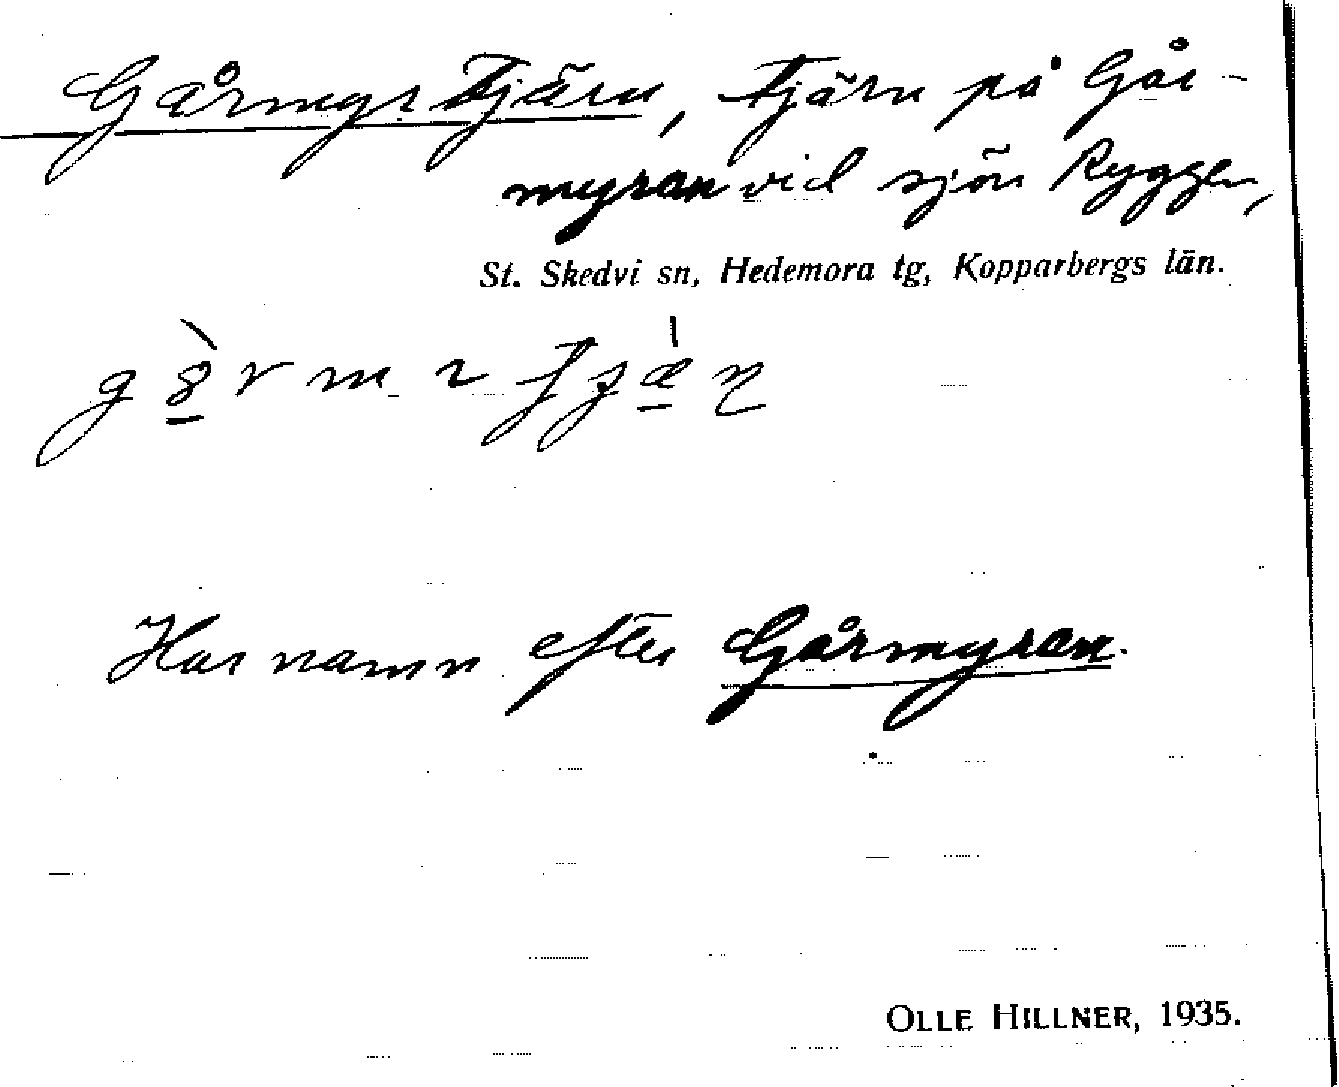 Gårmyrstjärn, tjärn på Går-
myran vid sjön Ryggen,
St. Skedvi sn, Hedemora tg, Kopparbergs län.
Har namn efter Gårmyran.
OLLE HILLNER, 1935.